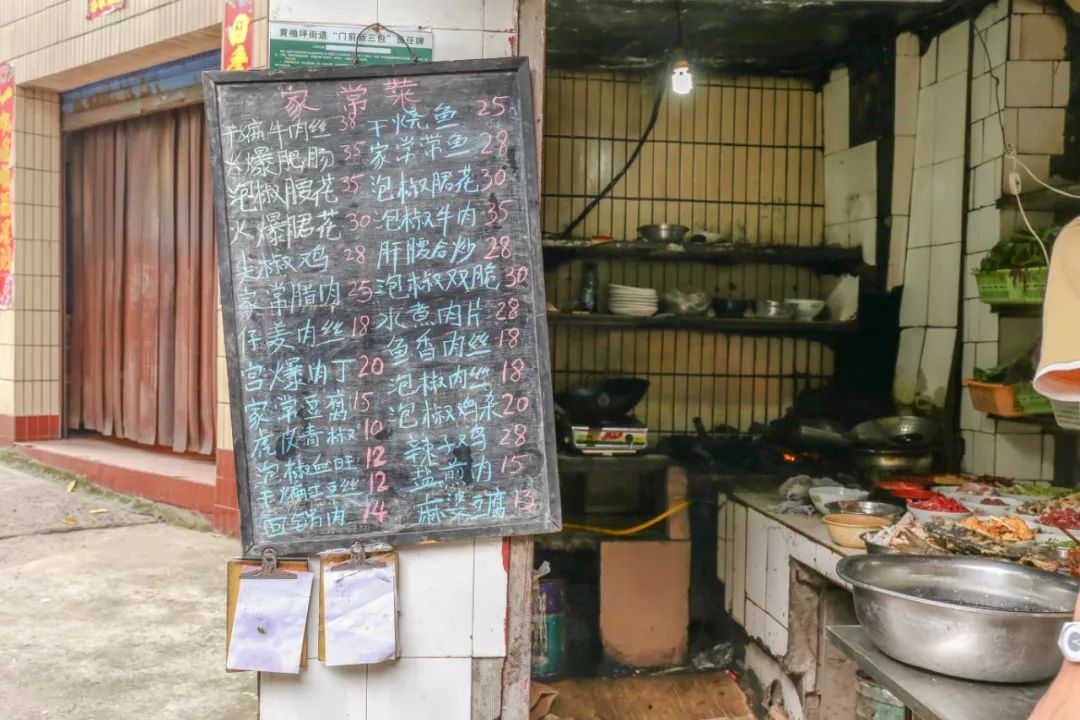 黄桷坪街道“门前新三包”责任牌
家常菜
干煸牛肉丝 38 干烧鱼 25
火爆肥肠 35 家常带鱼 28
泡椒腰花 35 泡椒䐃花 30
火爆䐃花 30 泡椒牛肉 35
尖椒鸡 28 肝腰合炒 28
家常腊肉 25 泡椒双脆 30
仔姜肉丝 18 水煮肉片 28
宫爆肉丁 20 鱼香肉丝 18
家常豆腐 15 泡椒肉丝 18
虎皮青椒 10 泡椒鸡杂 20
泡椒血旺 12 辣子鸡 28
干煸土豆丝 12 盐煎肉 15
回锅肉 14 麻婆豆腐 13